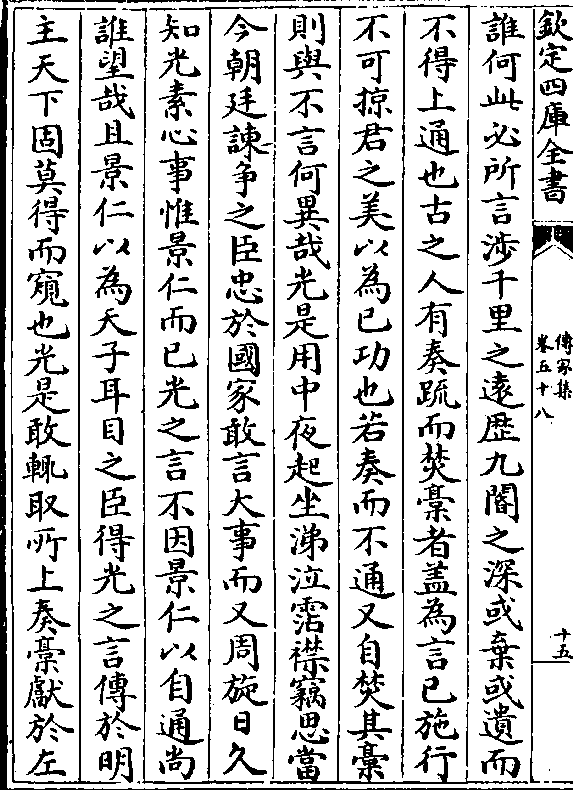 欽定四庫全書
傳家集
卷五十八
十五
誰何此必所言涉千里之遠歴九閽之深或棄或遺而
不得上通也古之人有奏䟽而焚稾者盖為言已施行
不可掠君之美以為已功也若奏而不通又自焚其稾
則與不言何異哉光是用中夜起坐涕泣霑襟竊思當
今朝廷諫争之臣忠於國家敢言大事而又周旋日久
知光素心事惟景仁而已光之言不因景仁以自通尚
誰望哉且景仁以為天子耳目之臣得光之言傳於明
主天下固莫得而窺也光是敢輒取所上奏稾獻於左